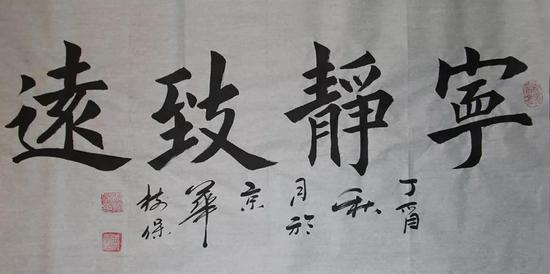 寧靜致遠
丁酉
秋
月於
京
華
保